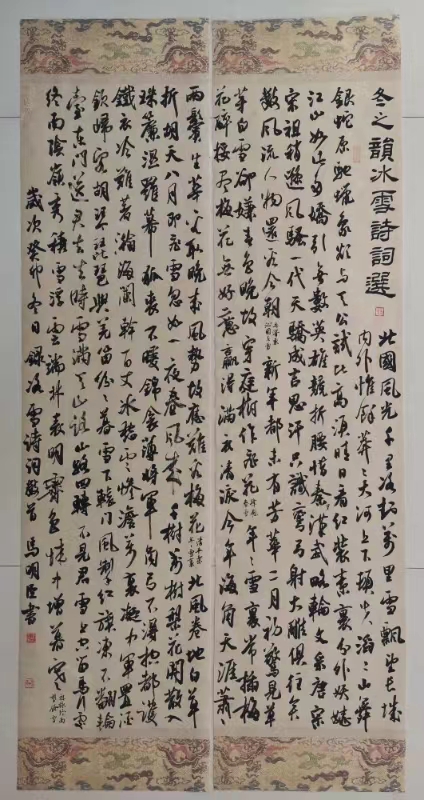 冬之韻冰雪詩詞選
北國風光千里冰封萬里雪飄望長城
内外惟餘莽々大河上下頓失滔々山舞
銀蛇原馳蠟象欲与天公試比高須晴日看红裝素裹分外妖娆
江山如此多嬌引無數英雄競折腰惜秦皇漢武略輸文采唐宗
宋祖稍遜風騷一代天驕成吉思汗只識彎弓射大雕俱往矣
數風流人物還看今朝新年都未有芳華二月初驚見草
芽白雪卻嫌春色晚故穿庭樹作飛花年々雪裏常插梅
花醉挼尽梅花無好意贏得滿衣清淚今年海角天涯蕭
兩鬢生華看取晚來風势故應難看梅花北風卷地白草
折胡天八月即飛雪忽如一夜春風來千樹萬樹梨花開散入
珠簾濕羅幕狐裘不暖錦衾薄將軍角弓不得控都護
鐵衣冷難着瀚海闌幹百丈冰愁雲惨澹萬里凝中軍置酒
飲歸客胡琴琵琶與羌笛紛々暮雪下轅門風掣红旗凍不翻輪
臺東門送君去去時雪滿天山路山迴路轉不見君雪上空留馬行處
终南陰嶺秀積雪浮雲端林表明霽色城中增暮寒
歲次癸卯冬日錄咏雪詩詞數首馬明臣書